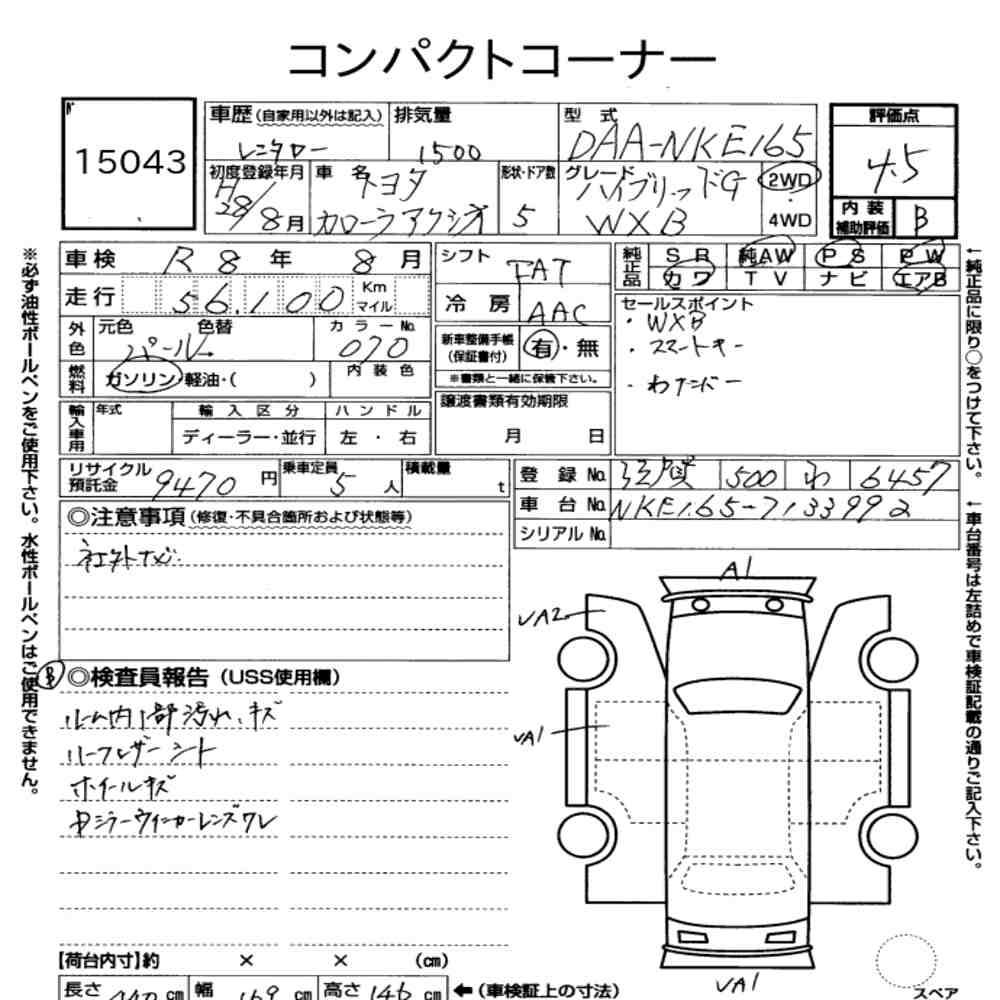 コンパクトコーナー
15043
車歴(自家用以外は記入) 排気量 型式 評価点
レンタカー 1500 DAA-NKE165 4.5
初度登録年月 車名 形状・ドア数 グレード
H28/8月 トヨタ カローラアクシオ 5 ハイブリッドG WXB 2WD 4WD
内装補助評価 B
車検 R8年 8月
走行 56,100 Km マイル
シフト FAT
冷房 AAC
純正品 SR 純AW PS PW
カワ TV ナビ エアB
セールスポイント
・WXB
・スマートキー
・ワンナンバー
外色 元色 色替 カラーNo.
パール 070
燃料 ガソリン・軽油・( ) 内装色
新車整備手帳(保証書付) 有・無
※書類と一緒に保管下さい。
輸入車用 年式 輸入区分 ハンドル
ディーラー・並行 左・右
譲渡書類有効期限
月 日
リサイクル預託金 9470円 乗車定員 5人 積載量 t
登録No. 滋賀 500 わ 6457
車台No. NKE165-7133992
シリアルNo.
◎注意事項(修復・不具合箇所および状態等)
社外ナビ
B ◎検査員報告(USS使用欄)
ルーム内1部汚れ、キズ
ハーフレザーシート
ホイールキズ
ミラーウィンカーレンズワレ
A1
UA2
UA1
UA1
スペア
【荷台内寸】約 × × (cm)
長さ cm 幅 169 cm 高さ 146 cm ←(車検証上の寸法)
※必ず油性ボールペンをご使用下さい。水性ボールペンはご使用できません。
←純正品に限り○をつけて下さい。
←車台番号は左詰めで車検証記載の通りご記入下さい。